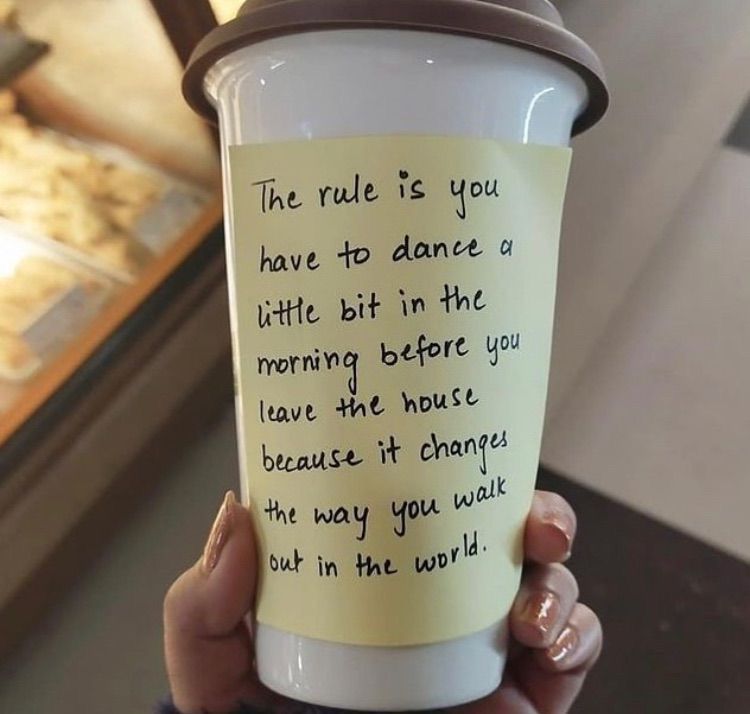 The rule is you
have to dance a
little bit in the
morning before you
leave the house
because it changes
the way you walk
out in the world.